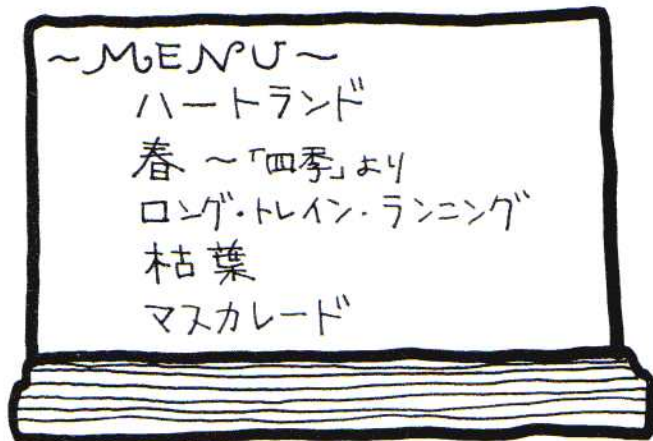 ～MENU～
ハートランド
春 ～「四季」より
ロング・トレイン・ランニング
枯葉
マスカレード